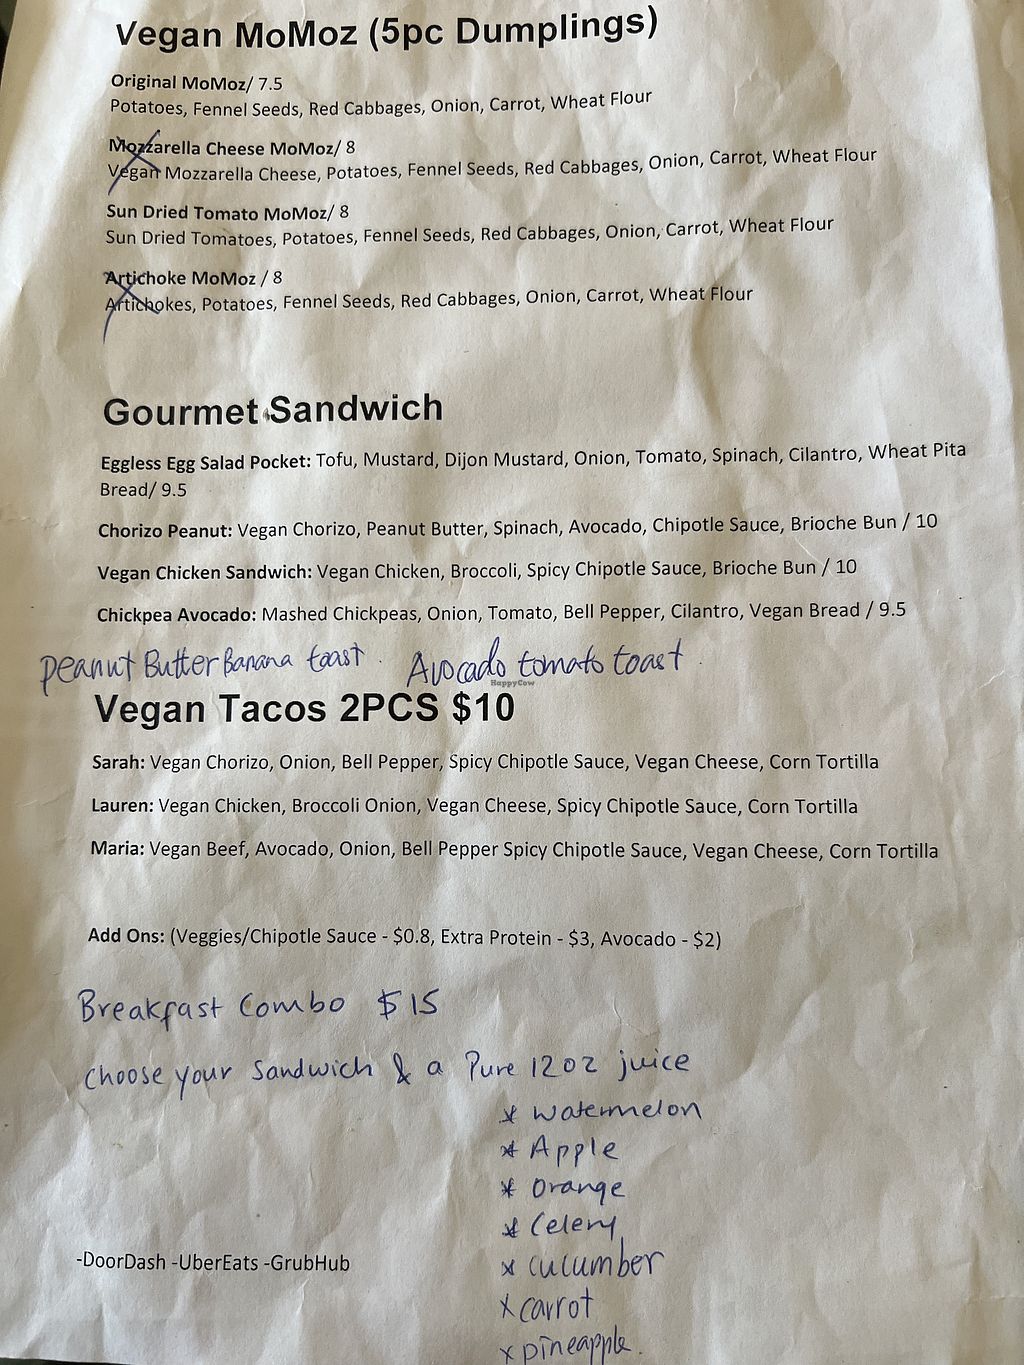 Vegan MoMoz (5pc Dumplings)
Original MoMoz/ 7.5
Potatoes, Fennel Seeds, Red Cabbages, Onion, Carrot, Wheat Flour
Mozzarella Cheese MoMoz/ 8
Vegan Mozzarella Cheese, Potatoes, Fennel Seeds, Red Cabbages, Onion, Carrot, Wheat Flour
Sun Dried Tomato MoMoz/ 8
Sun Dried Tomatoes, Potatoes, Fennel Seeds, Red Cabbages, Onion, Carrot, Wheat Flour
Artichoke MoMoz / 8
Artichokes, Potatoes, Fennel Seeds, Red Cabbages, Onion, Carrot, Wheat Flour
Gourmet Sandwich
Eggless Egg Salad Pocket: Tofu, Mustard, Dijon Mustard, Onion, Tomato, Spinach, Cilantro, Wheat Pita
Bread/ 9.5
Chorizo Peanut: Vegan Chorizo, Peanut Butter, Spinach, Avocado, Chipotle Sauce, Brioche Bun / 10
Vegan Chicken Sandwich: Vegan Chicken, Broccoli, Spicy Chipotle Sauce, Brioche Bun / 10
Chickpea Avocado: Mashed Chickpeas, Onion, Tomato, Bell Pepper, Cilantro, Vegan Bread / 9.5
Peanut Butter Banana toast. Avocado tomato toast.
HappyCow
Vegan Tacos 2PCS $10
Sarah: Vegan Chorizo, Onion, Bell Pepper, Spicy Chipotle Sauce, Vegan Cheese, Corn Tortilla
Lauren: Vegan Chicken, Broccoli Onion, Vegan Cheese, Spicy Chipotle Sauce, Corn Tortilla
Maria: Vegan Beef, Avocado, Onion, Bell Pepper Spicy Chipotle Sauce, Vegan Cheese, Corn Tortilla
Add Ons: (Veggies/Chipotle Sauce - $0.8, Extra Protein - $3, Avocado - $2)
Breakfast Combo $15
choose your Sandwich & a Pure 12oz juice
* Watermelon
* Apple
* Orange
* Celery
x cucumber
x carrot
x pineapple.
-DoorDash -UberEats -GrubHub